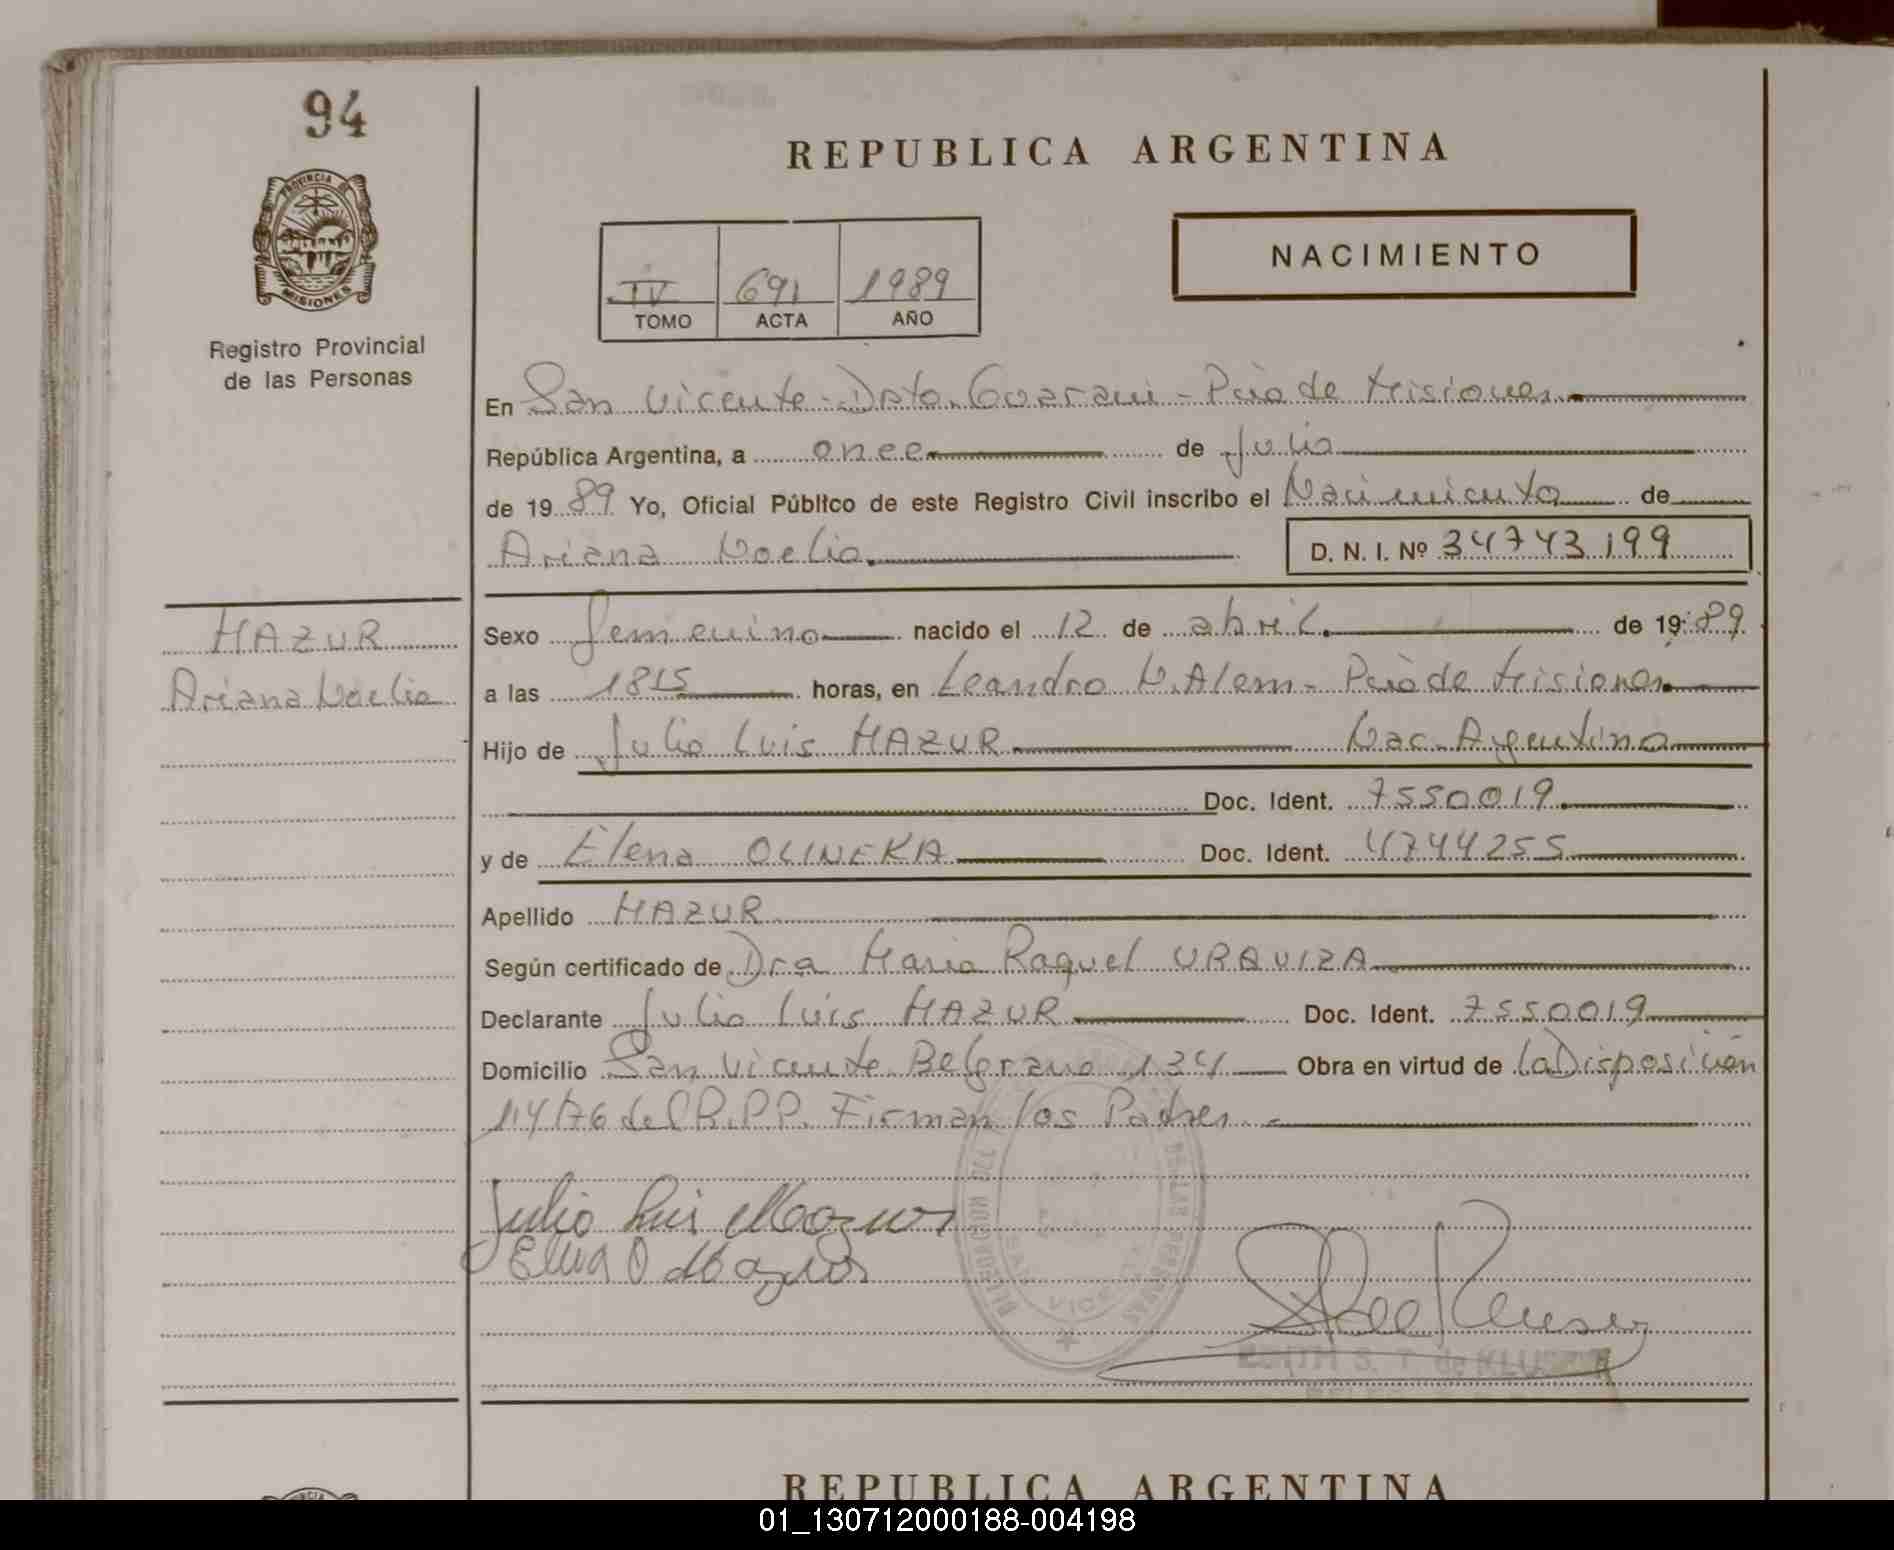 94
PROVINCIA DE
MISIONES
Registro Provincial
de las Personas
REPUBLICA ARGENTINA
NACIMIENTO
IV 691 1989
TOMO ACTA AÑO
En San Vicente - Dpto. Guarani - Pcia de Misiones
República Argentina, a once de Julio
de 1989 Yo, Oficial Público de este Registro Civil inscribo el Nacimiento de
Ariana Noelia D. N. I. Nº 34743199
MAZUR
Ariana Noelia
Sexo femenino nacido el 12 de abril de 1989
a las 1815 horas, en Leandro N. Alem - Pcia de Misiones
Hijo de Julio Luis MAZUR Nac. Argentino
Doc. Ident. 7550019
y de Elena OLINEKA Doc. Ident. 4744255
Apellido MAZUR
Según certificado de Dra Maria Raquel URAUIZA
Declarante Julio Luis MAZUR Doc. Ident. 7550019
Domicilio San Vicente Belgrano 134 Obra en virtud de la Disposición
114/76 del R.P.P. Firman los Padres.
Julio Luis Mazur
Elena O Mazur
SAN VICENTE
EDITH S. T. de
REPUBLICA ARGENTINA
01_130712000188-004198